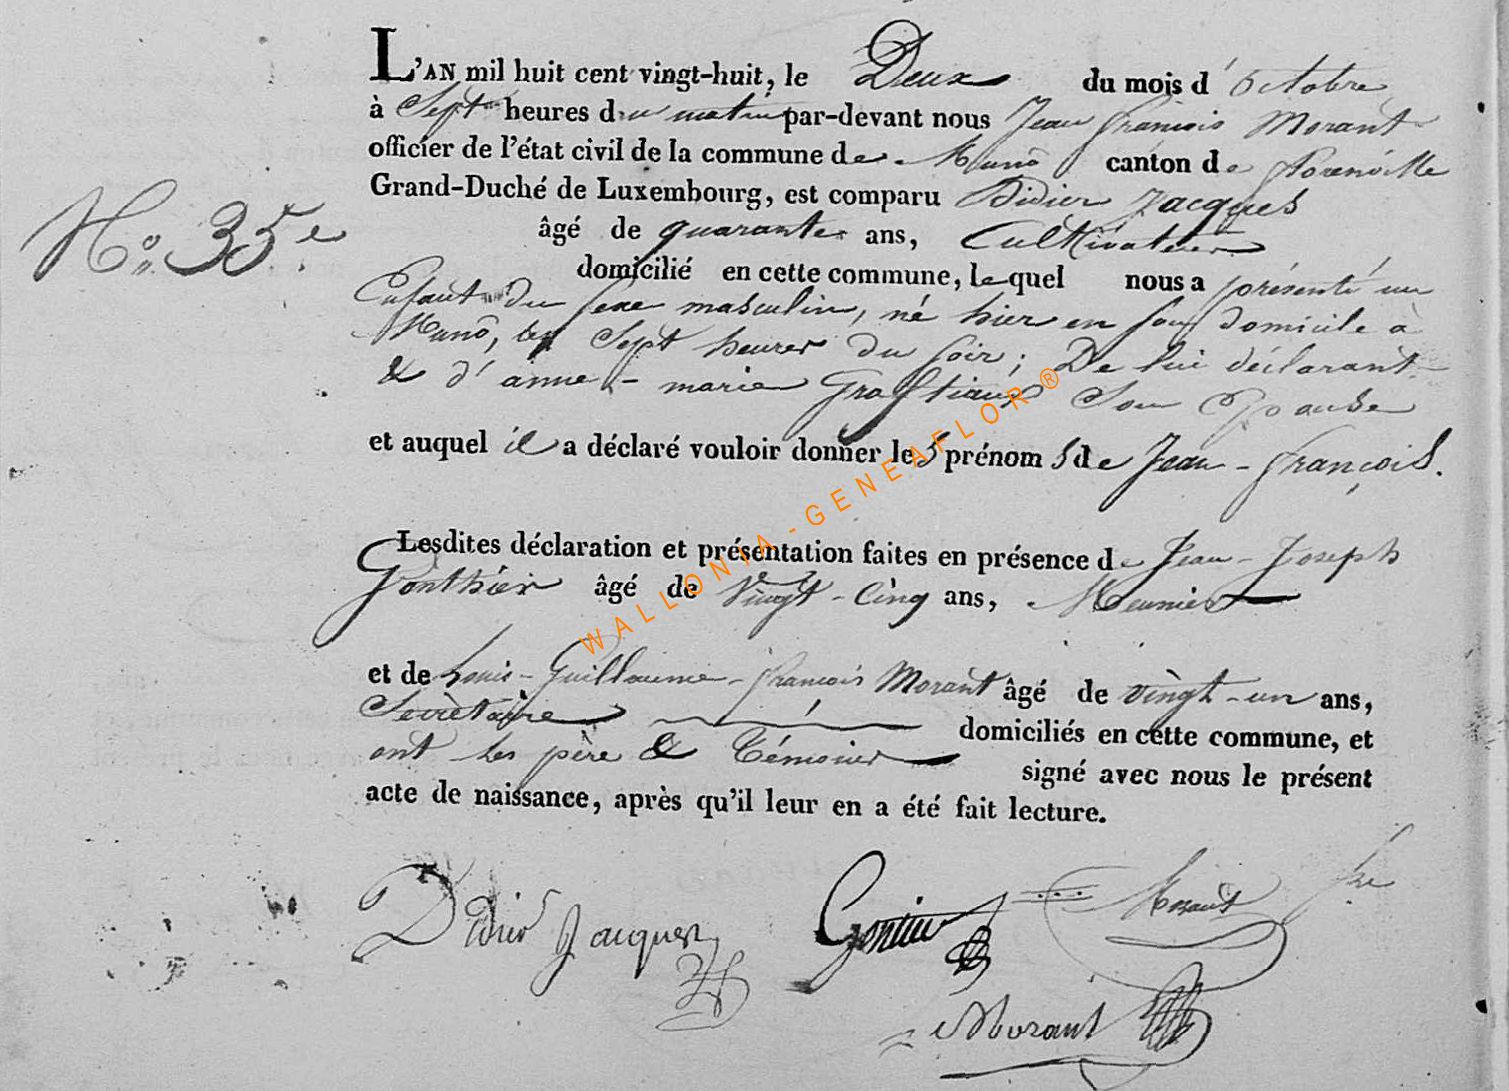 L'AN mil huit cent vingt-huit, le Deux du mois d'octobre
à Sept heures du matin par-devant nous Jean françois Morant
officier de l'état civil de la commune de Muno canton de florenville
N° 35e
Grand-Duché de Luxembourg, est comparu Didier Jacques
âgé de quarante ans, Cultivateur
domicilié en cette commune, lequel nous a présenté un
Enfant du sexe masculin, né hier en son domicile à
Muno, les Sept heures du soir; De lui déclarant
& d'anne-marie Son Epouse
et auquel il a déclaré vouloir donner les prénoms de Jean-françois.
Lesdites déclaration et présentation faites en présence de Jean-Joseph
Gonthier âgé de Vingt-Cinq ans, Meunier
et de Louis-Guillaume-françois Morant âgé de vingt-un ans,
Secrètaire domiciliés en cette commune, et
ont les père & Témoins signé avec nous le présent
acte de naissance, après qu'il leur en a été fait lecture.
Didier Jacques Morant
Morant
WALLONIA-GENEAFLOR®